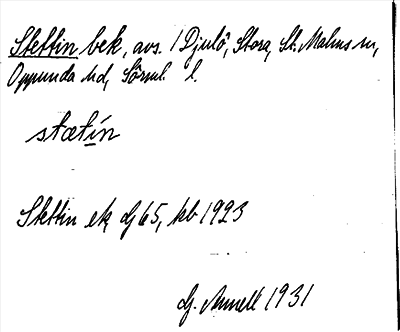 Stettin bek, avs. /Djulö, Stora, St. Malms sn,
Oppunda hd, Söml. l.
stætín
Stettin ek dj 65, kb 1923
dj. Annell 1931